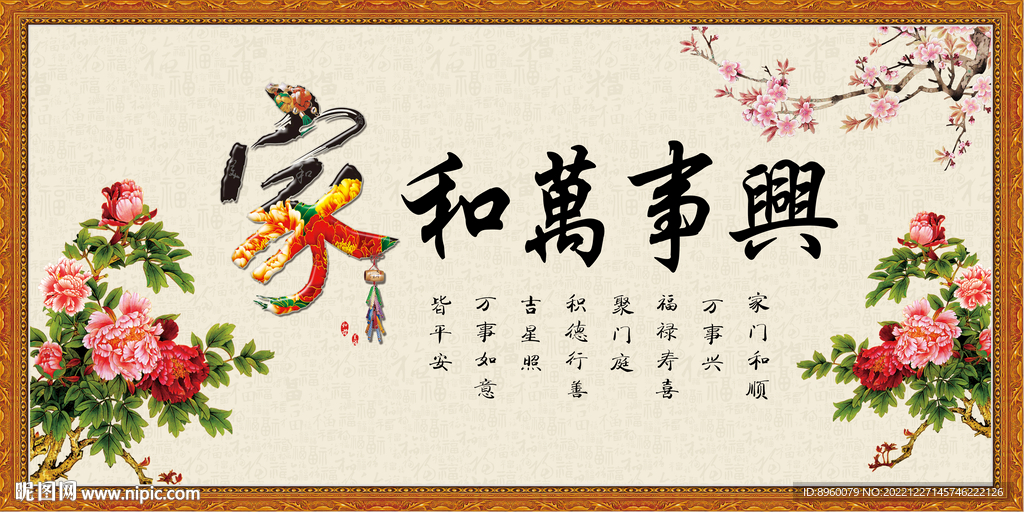 家和萬事興
家门和顺
万事兴
福禄寿喜
聚门庭
积德行善
吉星照
万事如意
皆平安
昵图网 www.nipic.com
ID:8960079 NO:20221227145746222126